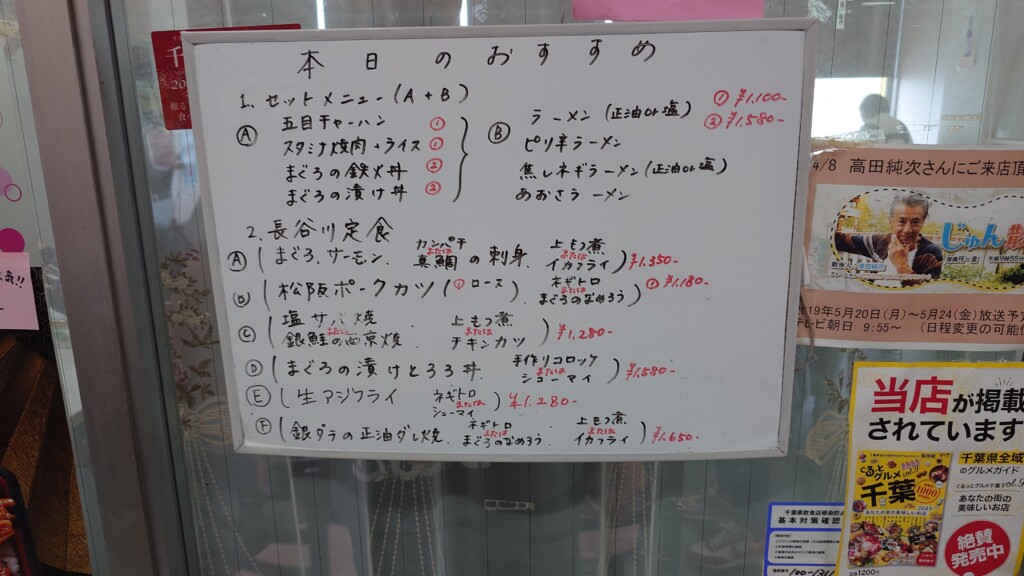 本日のおすすめ
1. セットメニュー(A+B)
Ⓐ 五目チャーハン ①
スタミナ焼肉+ライス ①
まぐろの鉄火丼 ②
まぐろの漬け丼 ②
Ⓑ ラーメン(正油or塩)
ピリ辛ラーメン
焦しネギラーメン(正油or塩)
あおさラーメン
① ¥1.100-
② ¥1.580-
2. 長谷川定食
Ⓐ (まぐろ、サーモン、カンパチまたは真鯛の刺身 上もつ煮またはイカフライ) ¥1.350-
Ⓑ (松阪ポークカツ(① ロース) ネギトロまたはまぐろのなめろう) ① ¥1.180-
Ⓒ (塩サバ焼または銀鮭の西京焼 上もつ煮またはチキンカツ) ¥1.280-
Ⓓ (まぐろの漬けとろろ丼、手作りコロッケまたはシューマイ) ¥1.580-
Ⓔ (生アジフライ ネギトロまたはシューマイ) ¥1.280-
Ⓕ (銀ダラの正油ダレ焼、ネギトロまたはまぐろのなめろう、上もつ煮またはイカフライ) ¥1.650-
4/8 高田純次さんにご来店頂
じゅん散
2019年5月20日(月)~5月24(金)放送予定
テレビ朝日 9:55~ (日程変更の可能性
当店が掲載
されています
千葉県全域
のグルメガイド
あなたの街の
美味しいお店
絶賛
発売中
ぐるっとグルメ
千葉
千葉県飲食店感染防止
基本対策確認